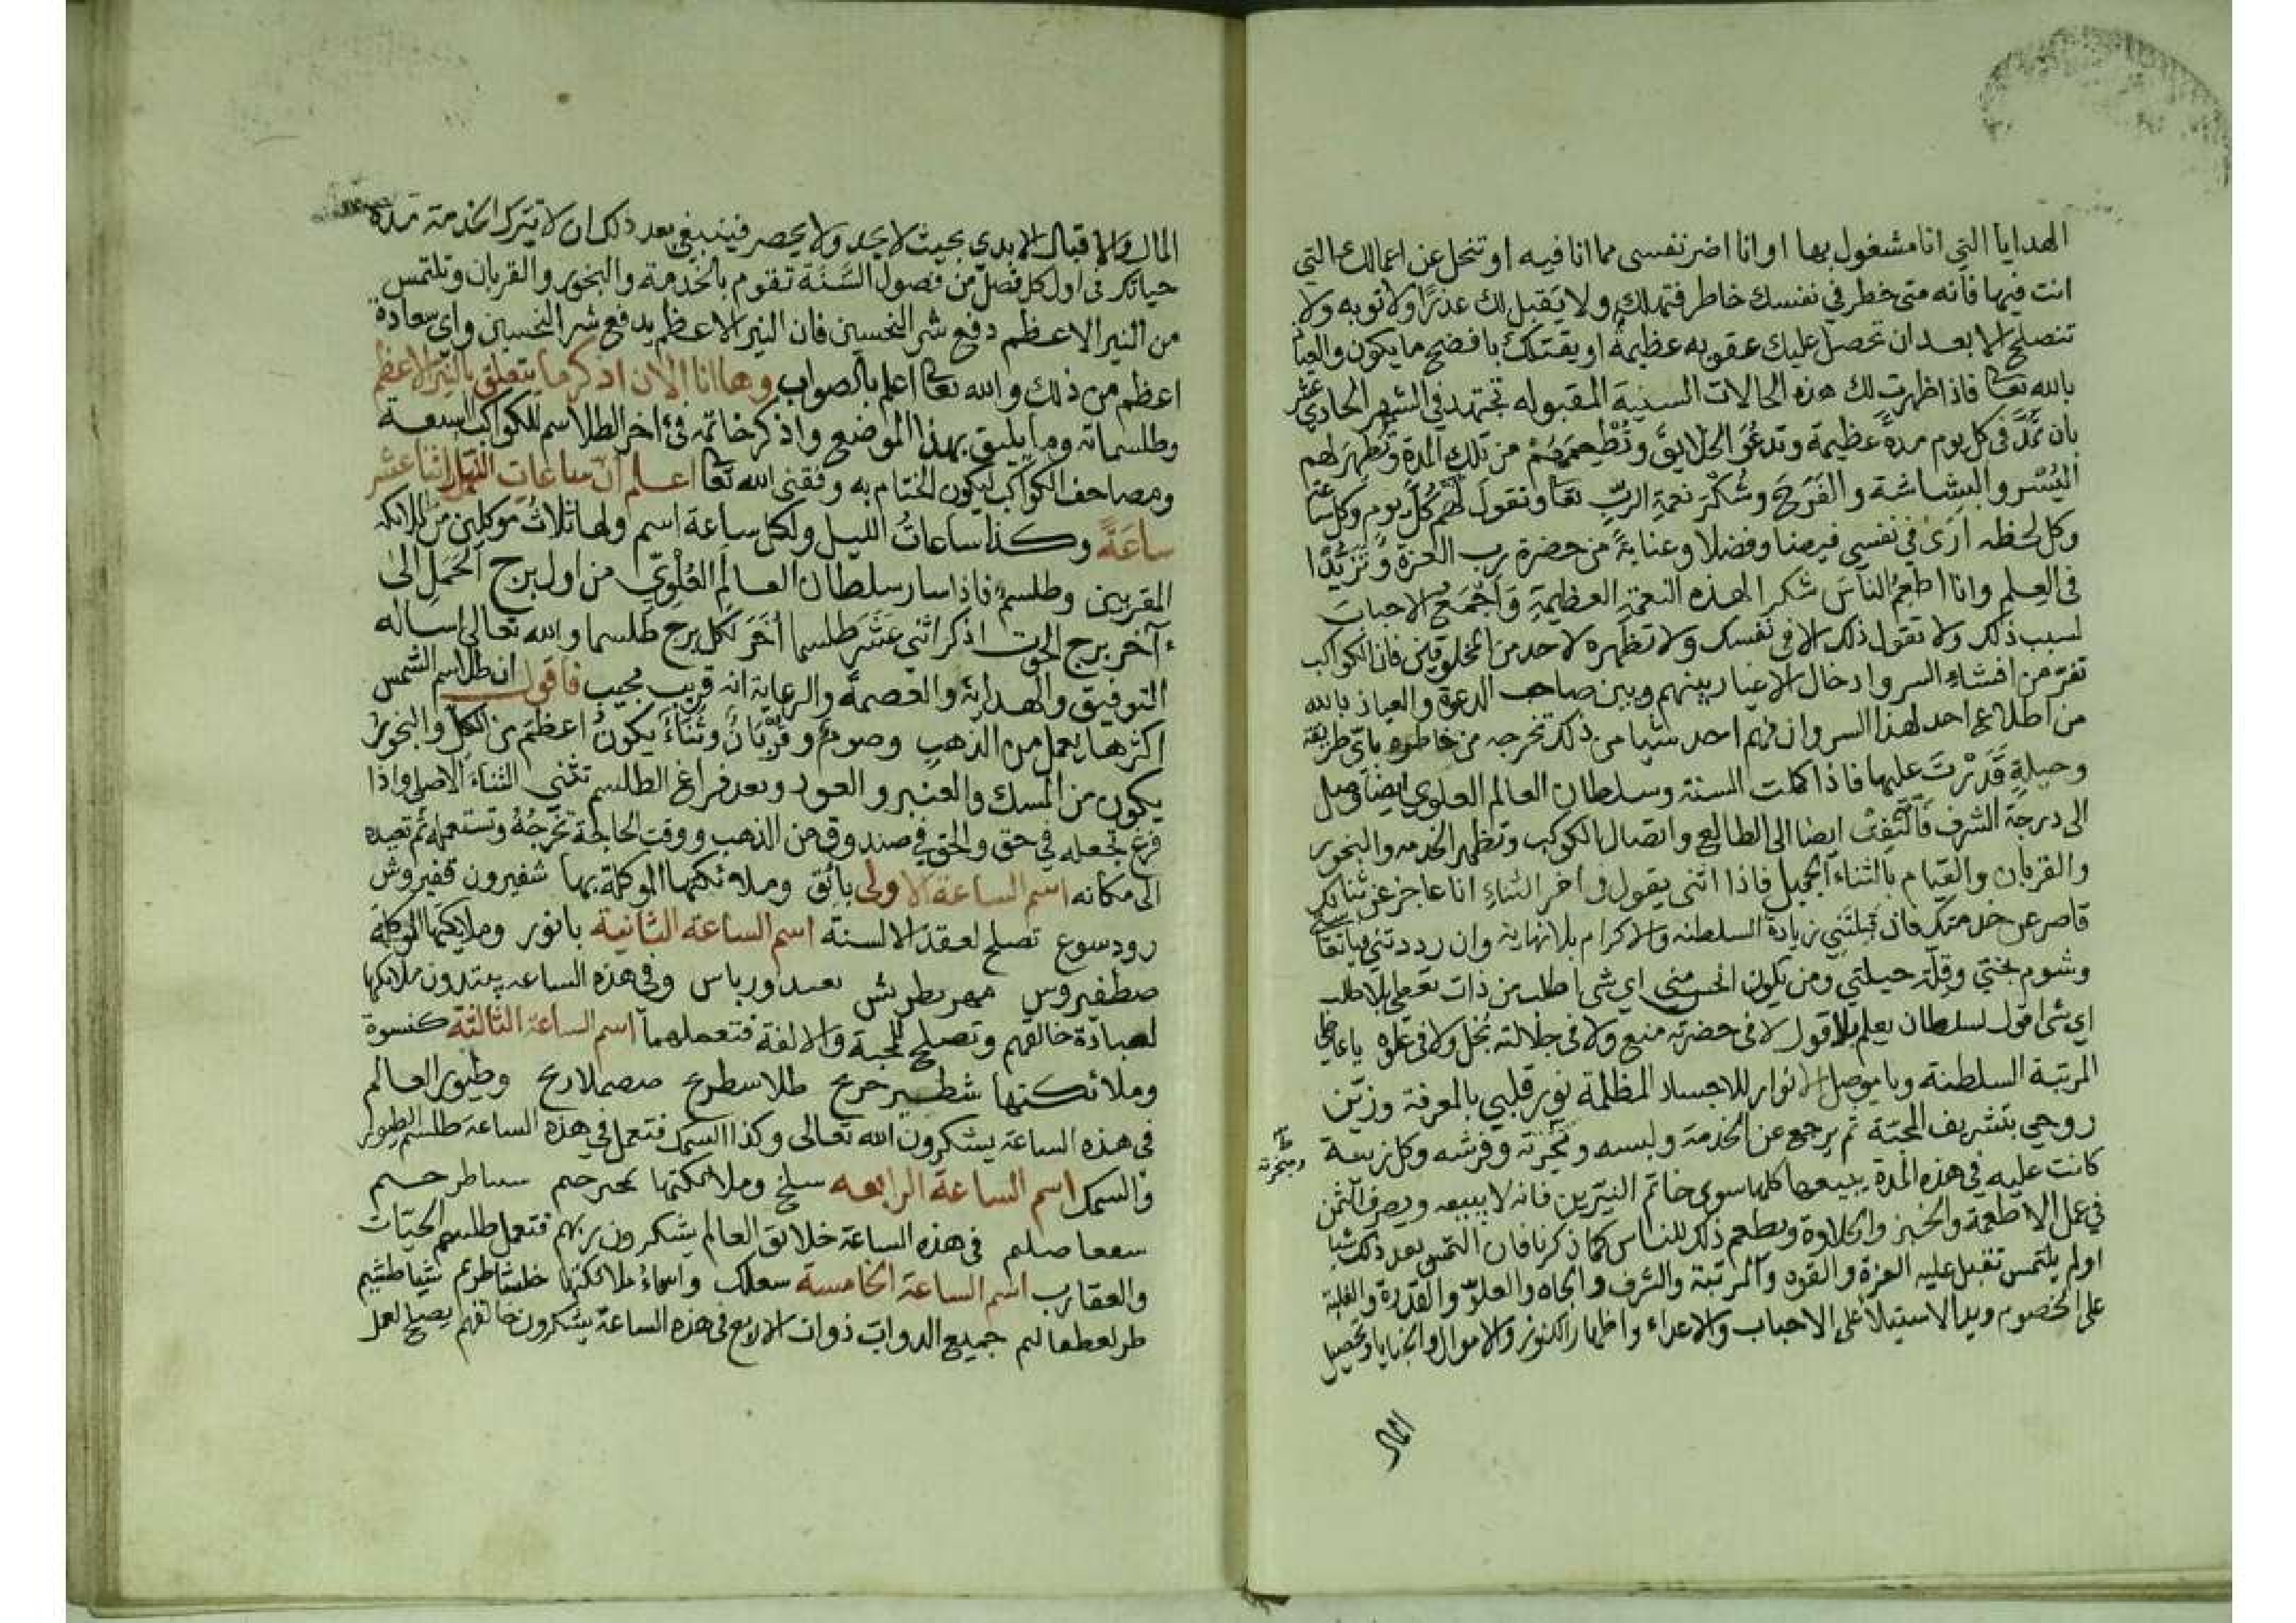 الهدايا التي انا مشغول بها او انا اضر نفسى مما انا فيه او تنحل عن اعمالك التي
انت فيها فانه متى خطر في نفسك خاطر فتهلك ولا يقبل لك عذرًا ولا توبه ولا
تنصلح الا بعد ان تحصل عليك عقوبه عظيمة او يقتلك بافضح ما يكون والعياذ
بالله تعا فاذا ظهرت لك هذه الحالات السنية المقبوله تجتهد في الشهر الحادي عشر
بان تمدّ فى كل يوم مدةً عظيمة وتدعُوَ الخلايق وتُطْعِمَهُمْ من تلك المدة وتُظهِرَ لهم
اليُسْر والبشاشة والفَرَحَ وشُكْرَ نعمةِ الربِّ تعا وتقول لهم كُلَّ يوم وكل
وكل لحظه ارىٰ في نفسي فيضا وفضلا وعنايةً من حضرة رب العزة وتَزَيُّدًا
فى العِلم وانا اطعِمُ الناسَ شكرا لهذه النعمةِ العظيمةِ وَاَجْمَعُ الاحبابَ
لسبب ذلك ولا تقول ذلك الا فى نفسك ولا تظهره لاحد من المخلوقين فان الكواكب
تفرّ من افشاء السر وادخال الاغيار بينهم وبين صاحب الدعوة والعياذ بالله
من اطلاع احد لهذا السر وان فهم احد شيا من ذلك تخرجه من خاطره باى طريقة
وحيلةٍ قَدَرْتَ عليها فاذا كملت السنة وسلطان العالم العلوى ايضا وصل
الى درجة الشرف فَالْتَفِتْ ايضا الى الطالع واتصال الكوكب وتظهر الخدمه والبخور
والقربان والقيام بالثناء الجميل فاذا اثنى يقول فى اخر الثناءِ انا عاجز عن ثنائك
قاصر عن خدمتك فان قبلتَنِي زيادة السلطنه والاكرام بلا نهاية وان رددتني
وشوم بختي وقلّة حيلتي ومن يكون انحس مني اي شى اطلب من ذات تعطي بلا طلب
اي شى اقول لسلطان يعلم بلا قول لا فى حضرته منيع ولا فى جلالته بخل ولا فى علوه
المرتبة السلطنة ويا موصل الانوار للاجساد المظلمة نور قلبي بالمعرفة وزيّن
روحي بتشريف المحبّة ثم يرجع عن الخدمة ولبسه وفرشه وكل زينة
كانت عليه في هذه المدة يبيعها كلها سوى خاتم النيّرين فانه لا يبيعه ويصرف الثمن
فى عمل الاطعمة والخبز والحلاوة ويطعم ذلك للناس كما ذكرنا فان التمس بعد ذلك شيا
او لم يلتمس تقبل عليه العزة والقوه والمرتبة والشرف والجاه والعلوّ والقدرة والغلبة
على الخصوم ويد الاستيلا على الاحباب والاعداء واظهار الكنوز والاموال والخبايا وتحصيل
المال
المال والاقبال الابدي بحيث لا يحد ولا يحصر فينبغى بعد ذلك ان لا تترك الخدمة مدة
حياتك فى اول كل فصل من فصول السَّنَة تقوم بالخدمة والبخور والقربان وتلتمس
من النير الاعظم دفع شر النحسين فان النير الاعظم يدفع شر النحسين واى سعادة
اعظم من ذلك والله تعا اعلم بالصواب وها انا الان اذكر ما يتعلق بالنير الاعظم
وطلسماته وما يليق بهذا الموضع واذكر خاتمه فى اخر الطلاسم للكواكب السبعة
ومصاحف الكواكب ليكون الختام به وفقنى الله تعا اعلم ان ساعات النهار اثنا عشر
ساعَةً وكذا ساعاتُ الليل ولكل ساعة اسم ولها ثلاث موكلين من الملائكه
المقربين وطلسم فاذا سار سلطان العالَم العُلْوِيّ من اول برج الحمَل الى
آخر برج الحوت اذكر اثني عَشَرَ طلسما اُخَرَ لكل برج طلسما والله تعالى اساله
التوفيق والهداية والعصمة والرعاية انه قريب مجيب فاقول ان طلاسم الشمس
اكثرها يعمل من الذهب وصومُ وقُرْبانُ وثَناءُ يكونُ اعظَم من الكل والبخور
يكون من المسك والعنبر والعود وبعد فراغ الطلسم تثني الثناءَ الاصلى واذا
فرغ تجعله في حق والحق في صندوق من الذهب ووقت الحاجة تخرجُهُ وتستعمله ثم تعيده
الى مكانه اسم الساعة الاولى يائق وملائكتها الموكلة بها شفيرون قفيروش
رودسوع تصلح لعقد الالسنة اسم الساعه الثانية بانور وملايكتها الموكلة
صطفيروس مهريطريش وفى هذه الساعه يبتدون ملائكتها
لعبادة خالقهم وتصلح للمحبة والالفة فتعملهما اسم الساعة الثالثة كنسوة
وملائكتها شطيرحرح طلاسطرح صصملارح وطيور العالم
فى هذه الساعة يشكرون الله تعالى وكذا السمك فتعمل في هذه الساعة طلسم الطيور
والسمك اسم الساعة الرابعه سلخ وملائكتها
فى هذه الساعة خلائق العالم يشكرون ربهم فتعمل طلسم الحيّات
والعقارب اسم الساعة الخامسة سعلك واسماءُ ملائكتها
جميع الدواب ذوات الاربع فى هذه الساعة يشكرون خالقهم يصلح لعمل